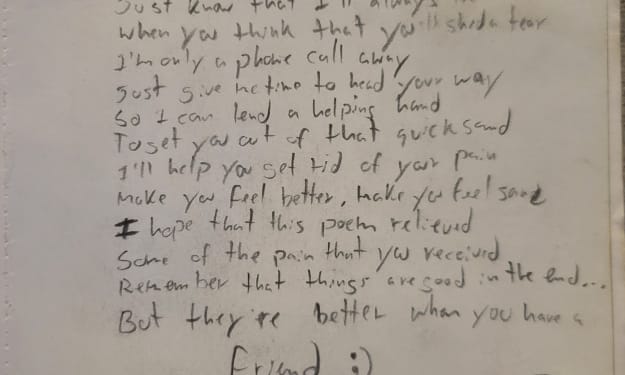 Just know that I'll always
When you think that you'll shed a tear
I'm only a phone call away
Just give me time to head your way
So I can lend a helping hand
To get you out of that quicksand
I'll help you get rid of your pain
Make you feel better, make you feel sane
I hope that this poem relieved
Some of the pain that you received
Remember that things are good in the end...
But they're better when you have a
friend ;)